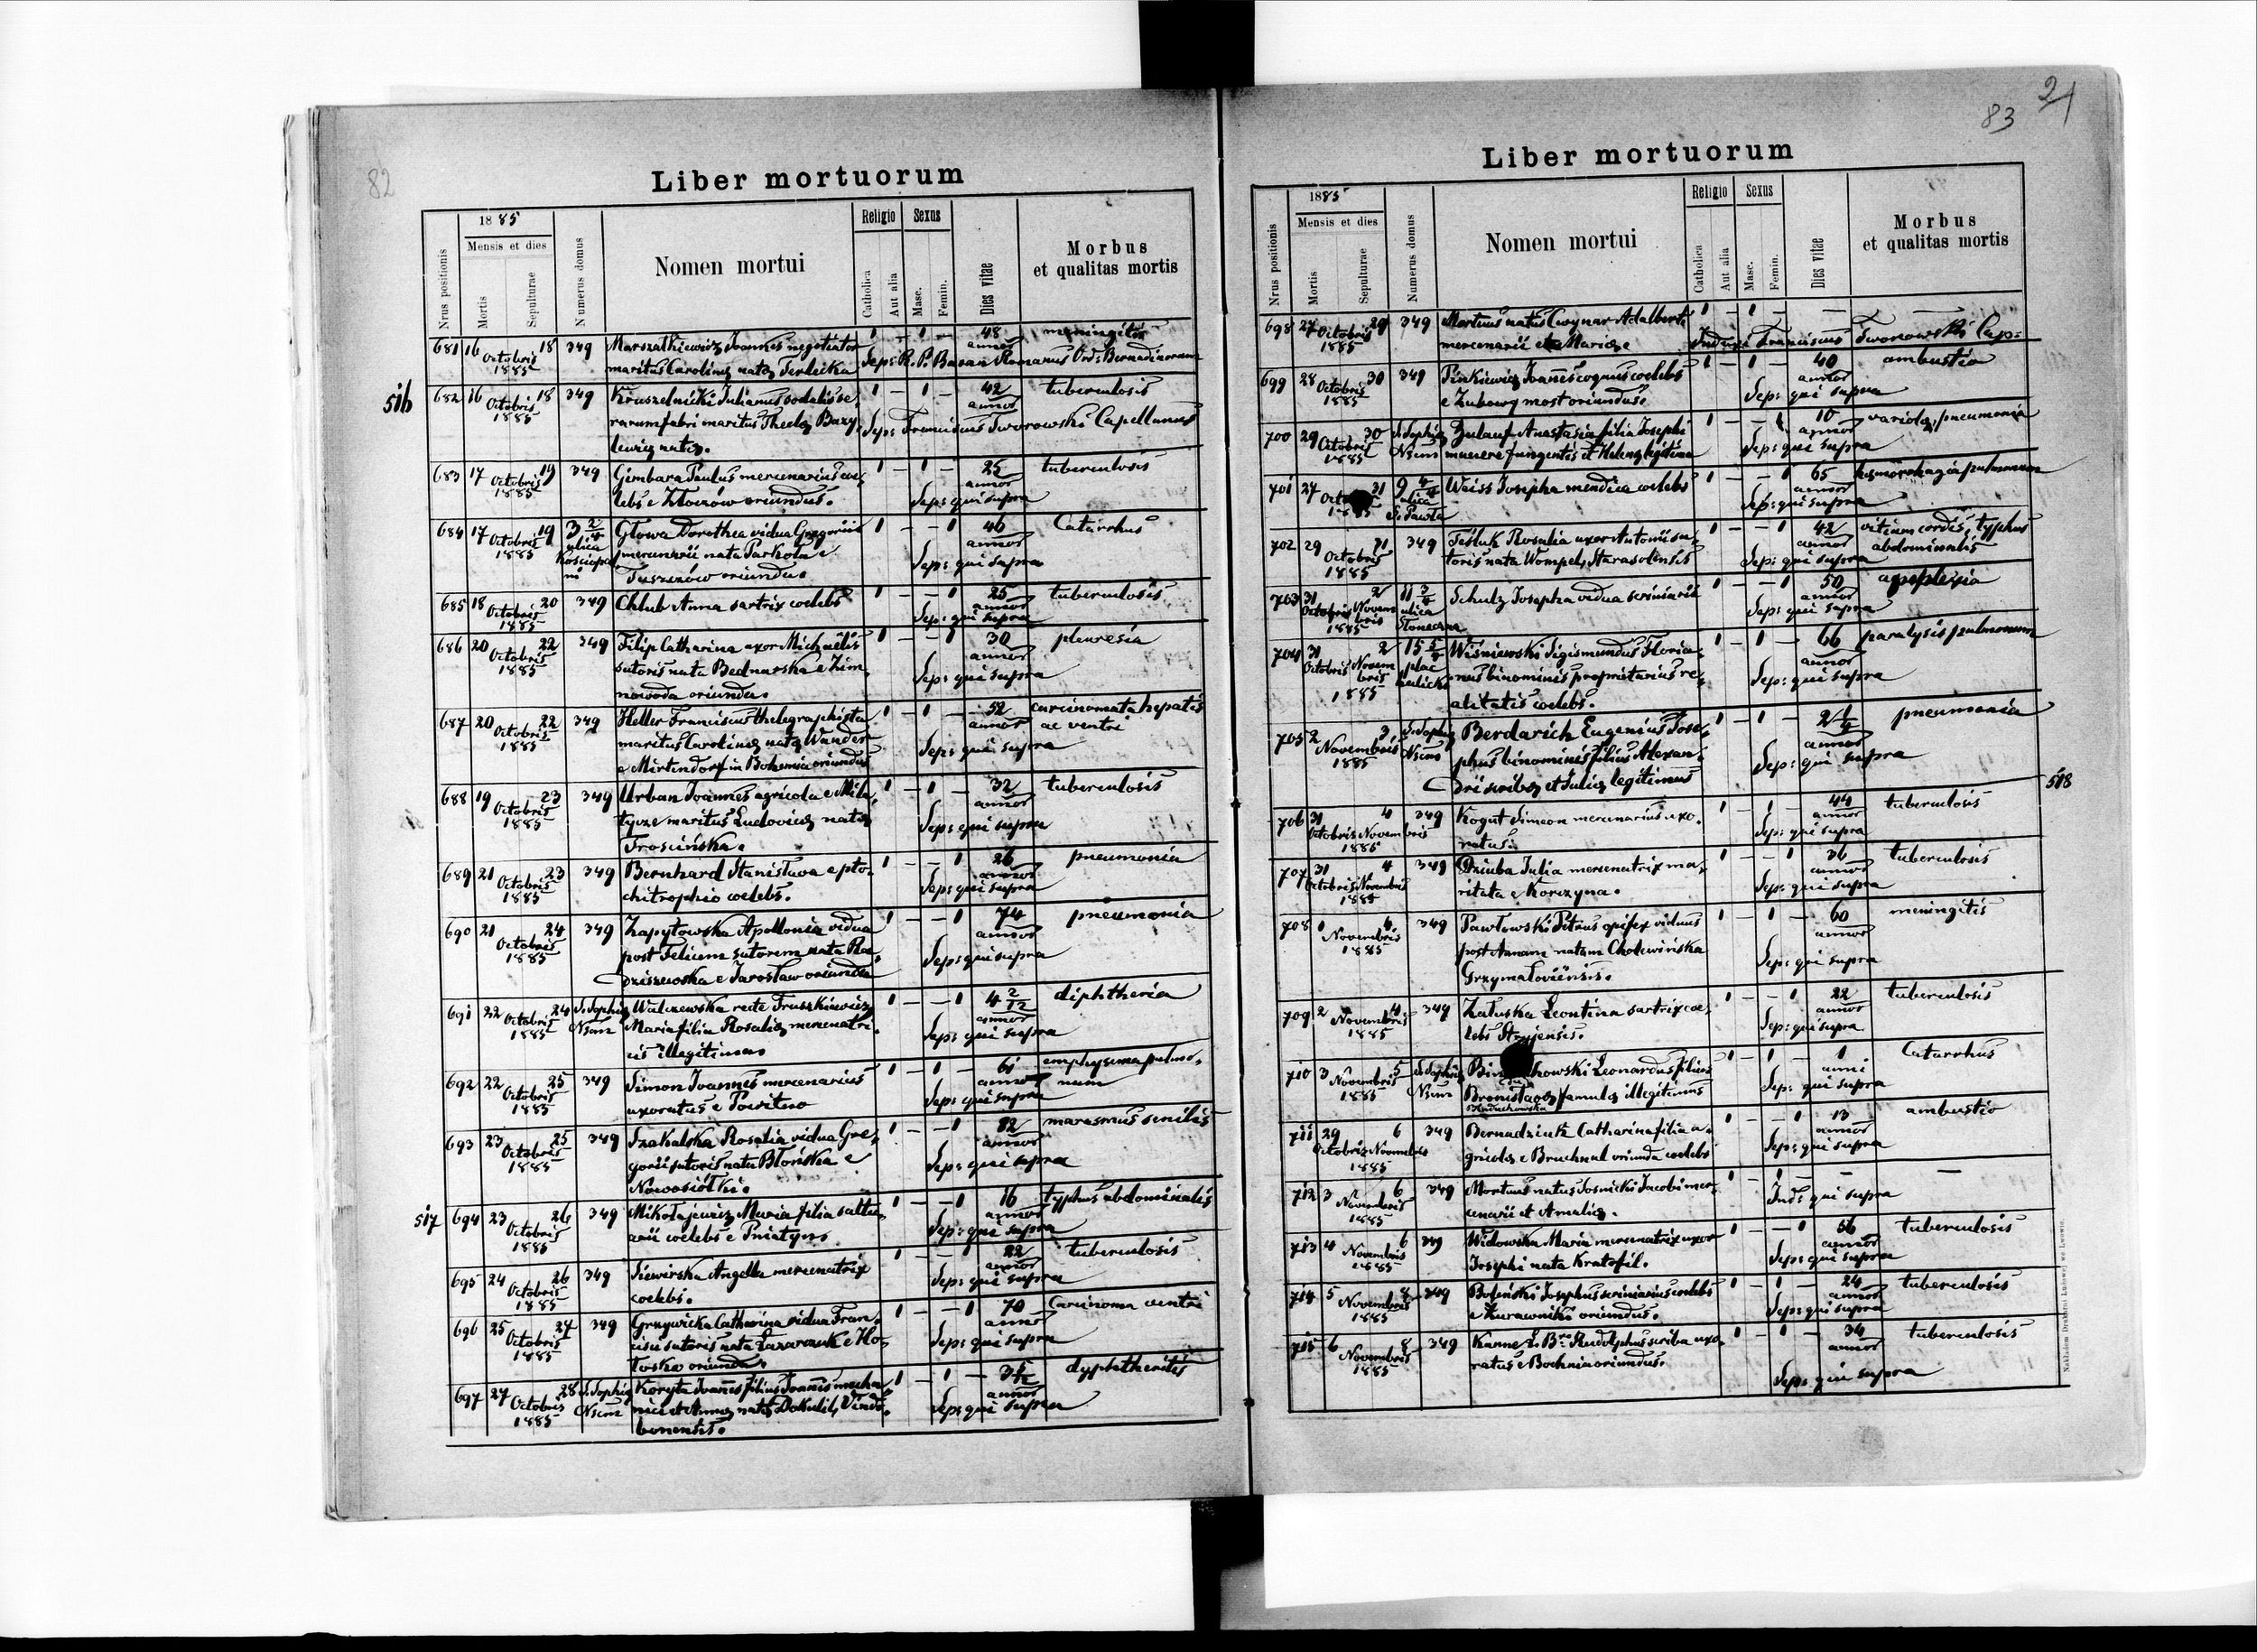 82
Liber mortuorum
1885
Mensis et dies
Nrus positionis
Mortis
Sepulturae
Numerus domus
Nomen mortui
Religio
Catholica
Aut alia
Sexus
Masc.
Femin.
Dies vitae
Morbus
et qualitas mortis
681 16 Octobris 18 349 Marszałkiewicz Joannes negotiator 1 - 1 - 48 meningitis
1885 maritus Carolinę natę Terlecka annor
Sep: R. P. Ord: Bernadinorum
516
682 16 Octobris 18 349 Kruszelnicki Julianus sodalis se, 1 - 1 - 42 tuberculosis
1885 rarum fabri maritus Theclę Bazy, annor
lewicz natę. Sep: Franciscus Tworowski Capellanus
683 17 Octobris 19 349 Gimbara Paulus mercenarius coe, 1 - 1 - 25 tuberculosis
1885 lebs e Złoczów oriundus. annor
Sep: qui supra
684 17 Octobris 19 3 2/4 Głowa Dorothea vidua Gregorii 1 - - 1 46 Catarrhus
1885 ulica mercenarii nata Parkola e annor
Tuszków oriunda. Sep: qui supra
685 18 Octobris 20 349 Chlub Anna sartrix coelebs 1 - - 1 25 tuberculosis
1885 annor
Sep: qui supra
686 20 Octobris 22 349 Filip Catharina uxor Michaelis 1 - - 1 30 pleuresia
1885 sutoris nata Bednarska e Zim, annor
nowoda oriunda. Sep: qui supra
687 20 Octobris 22 349 Heller Franciscus thelegraphista 1 - 1 - 52 carcinomata hepatis
1885 maritus Carolinę natę Wander annor ac ventri
e Mirtendorf in Bohemia oriundus Sep: qui supra
688 19 Octobris 23 349 Urban Joannes agricola e Mila, 1 - 1 - 32 tuberculosis
1885 tycze maritus Ludovicę natę annor
Trosińska. Sep: qui supra
689 21 Octobris 23 349 Bernhard Stanislava e pto, 1 - - 1 26 pneumonia
1885 chitrophio coelebs. annor
Sep: qui supra
690 21 Octobris 24 349 Zapytowska Apollonia vidua 1 - - 1 74 pneumonia
1885 post Felicem sutorem nata Ra, annor
dziszewska e Jarosław oriunda Sep: qui supra
691 22 Octobris 24 S. Sophię Walczewska recte Truszkiewicz 1 - - 1 4 2/12 diphtheria
1885 Nsum Maria filia Rosalię mercenatri, annor
cis illegitima Sep: qui supra
692 22 Octobris 25 349 Simon Joannes mercenarius 1 - 1 - 61 emphysema pulmo,
1885 uxoratus e Powitno annor num
Sep: qui supra
693 23 Octobris 25 349 Szakalska Rosalia vidua Gre, 1 - - 1 82 marasmus senilis
1885 gorii sutoris nata Błońska e annor
Nowosiółki. Sep: qui supra
517
694 23 Octobris 26 349 Mikołajewicz Maria filia saltu, 1 - - 1 16 typhus abdominalis
1885 arii coelebs e Pniatyn annor
Sep: qui supra
695 24 Octobris 26 349 Siewirska Angela mercenatrix 1 - - 1 22 tuberculosis
1885 coelebs. annor
Sep: qui supra
696 25 Octobris 27 349 Grzywicka Catharina vidua Fran, 1 - - 1 70 Carcinoma ventri
1885 cisci sutoris nata e Ho, annor
łosko oriunda. Sep: qui supra
697 27 Octobris 28 S. Sophię Koryta Joannes filius Joannis mecha, 1 - 1 - dyphtheritis
1885 Nsum nici et Annę natę Dokulil, Vindo, annor
bonensis. Sep: qui supra
83
21
Liber mortuorum
1885
Mensis et dies
Nrus positionis
Mortis
Sepulturae
Numerus domus
Nomen mortui
Religio
Catholica
Aut alia
Sexus
Masc.
Femin.
Dies vitae
Morbus
et qualitas mortis
698 27 Octobris 29 349 Mortuus natus Cwynar Adalberti 1 - 1 - - -
1885 mercenarii et Marię. Franciscus Tworowski Cap:
699 28 Octobris 30 349 Pinkiewicz Joannes coquus coelebs 1 - 1 - 40 ambustio
1885 e Zubowymost oriundus. annor
Sep: qui supra
700 29 Octobris 30 S. Sophię Zulauf Anastasia filia Josephi 1 - - 1 10 variola, pneumonia
1885 Nsum munere fungentis et Helenę legitima annor
Sep: qui supra
701 27 31 9 4/4 Weiss Josepha mendica coelebs 1 - - 1 65 haemorrhagia pulmonum
ulica annor
S. Pawła Sep: qui supra
702 29 Octobris 31 349 Teśluk Rosalia uxor Antonii su, 1 - - 1 42 vitium cordis, typhus
1885 toris nata Wompel, Starasolensis annor abdominalis
Sep: qui supra
703 31 Octobris 2 Novembris 11 3/4 Schulz Josepha vidua scriniarii 1 - - 1 50 apoplexia
1885 ulica annor
Słoneczna Sep: qui supra
704 31 Octobris 2 Novembris 15 Wiśniewski Sigismundus Floria, 1 - 1 - 66 paralysis pulmonum
1885 plac nus binominis proprietarius re, annor
alitatis coelebs. Sep: qui supra
705 2 Novembris 3 S. Sophię Berdarich Eugenius Jose, 1 - 1 - pneumonia
1885 Nsum phus binominis filius Alexan, annor
drii scribę et Julię legitimus Sep: qui supra
518
706 31 Octobris 4 Novembris 349 Kogut Simeon mercenarius uxo, 1 - 1 - 44 tuberculosis
1885 ratus. annor
Sep: qui supra
707 31 Octobris 4 Novembris 349 Dziuba Julia mercenatrix ma, 1 - - 1 36 tuberculosis
1885 ritata e Korczyna. annor
Sep: qui supra
708 1 Novembris 4 349 Pawłowski Petrus opifex viduus 1 - 1 - 60 meningitis
1885 post Annam natam Cholewińska annor
Grzymaloviensis. Sep: qui supra
709 2 Novembris 4 349 Załuska Leontina sartrix coe, 1 - - 1 22 tuberculosis
1885 lebs Stryjensis. annor
Sep: qui supra
710 3 Novembris 5 S. Sophię Leonardus filius 1 - 1 - 1 Catarrhus
1885 Nsum Bronisławę famulę illegitimus anni
Sep: qui supra
711 29 Octobris 6 Novembris 349 Bernadziuk Catharina filia a, 1 - - 1 13 ambustio
1885 gricolę e Bruchnal oriunda coelebs annor
Sep: qui supra
712 3 Novembris 6 349 Mortuus natus Sosnicki Jacobi mer, 1 - 1 - - -
1885 cenarii et Amalię. Ind: qui supra
713 4 Novembris 6 349 Widowska Maria mercenatrix uxor 1 - - 1 56 tuberculosis
1885 Josephi nata Kratofil. annor
Sep: qui supra
714 5 Novembris 8 349 Josephus scriniarius coelebs 1 - 1 - 24 tuberculosis
1885 e Żurawniki oriundus. annor
Sep: qui supra
715 6 Novembris 8 349 Kanne L. Br. Rudolphus scriba uxo, 1 - 1 - 34 tuberculosis
1885 ratus e Bochnia oriundus. annor
Sep: qui supra
Nakładem Drukarni Ludowej we Lwowie.